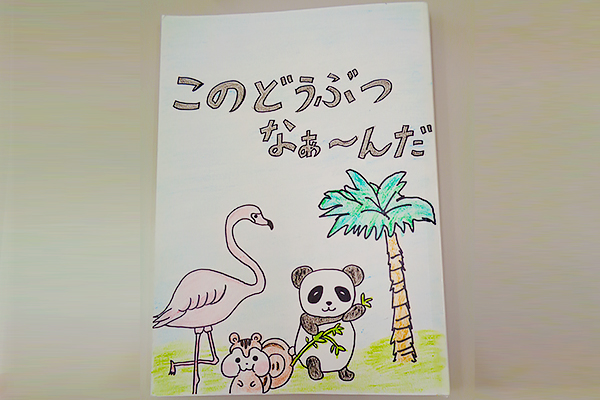 このどうぶつ
なぁ〜んだ